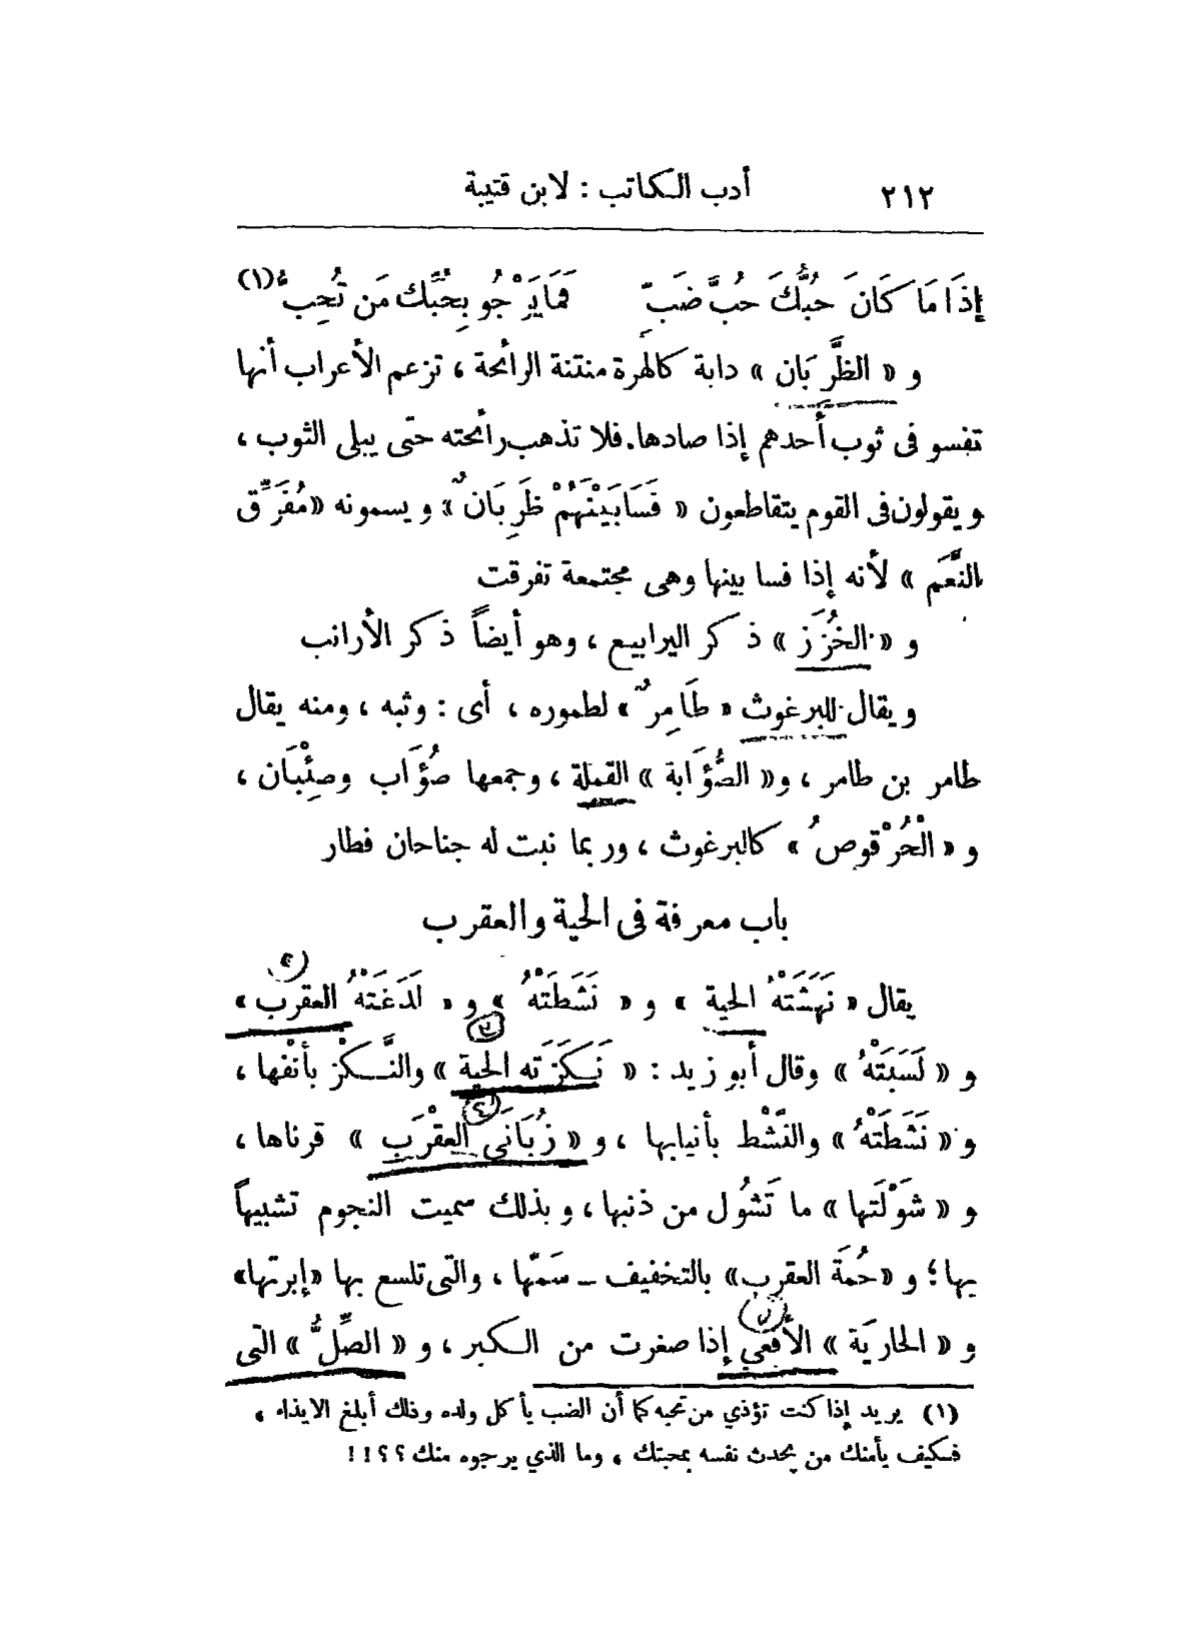 ٢١٢ أدب الكاتب : لابن قتيبة
إذَا مَا كَانَ حُبُّكَ حُبَّ ضَبٍّ فَمَا يَرْجُو بِحُبِّكَ مَن تُحِبُّ (١)
و « الظَّرِبَان » دابة كالهرة منتنة الرائحة ، تزعم الأعراب أنها
تفسو فى ثوب أحدهم إذا صادها . فلا تذهب رائحته حتى يبلى الثوب ،
ويقولون فى القوم يتقاطعون « فَسَا بَيْنَهُمْ ظَرِبَانٌ » ويسمونه « مُفَرِّق
النَّعَم » لأنه إذا فسا بينها وهى مجتمعة تفرقت
و « الخُزَز » ذكر اليرابيع ، وهو أيضاً ذكر الأرانب
ويقال للبرغوث « طَامِرٌ » لطموره ، أى : وثبه ، ومنه يقال
طامر بن طامر ، و« الصُّؤَابة » القملة ، وجمعها صُؤَاب وصِئْبَان ،
و « الْحُرْقوصُ » كالبرغوث ، وربما نبت له جناحان فطار
باب معرفة فى الحية والعقرب
يقال « نَهَشَتْهُ الحية » و « نَشَطَتْهُ » و « لَدَغَتْهُ العقرب »
و « لَسَبَتْهُ » وقال أبو زيد : « نَكَزَته الحية » والنَّكْز بأنْفها ،
و « نَشَطَتْهُ » والنَّشْط بأنيابها ، و « زُبَانَى العقْرَبِ » قرناها ،
و « شَوْلَتها » ما تَشُول من ذنبها ، وبذلك سميت النجوم تشبيهاً
بها ؛ و « حُمَةَ العقرب » بالتخفيف ــ سَمّها ، والتى تلسع بها « إبرتها »
و « الحارِيَة » الأفعي إذا صغرت من الكبر ، و « الصِّلُّ » التى
(١) يريد إذا كنت تؤذي من تحبه كما أن الضب يأكل ولده وذلك أبلغ الايذاء ،
فكيف يأمنك من يحدث نفسه بمحبتك ، وما الذي يرجوه منك ؟؟!!